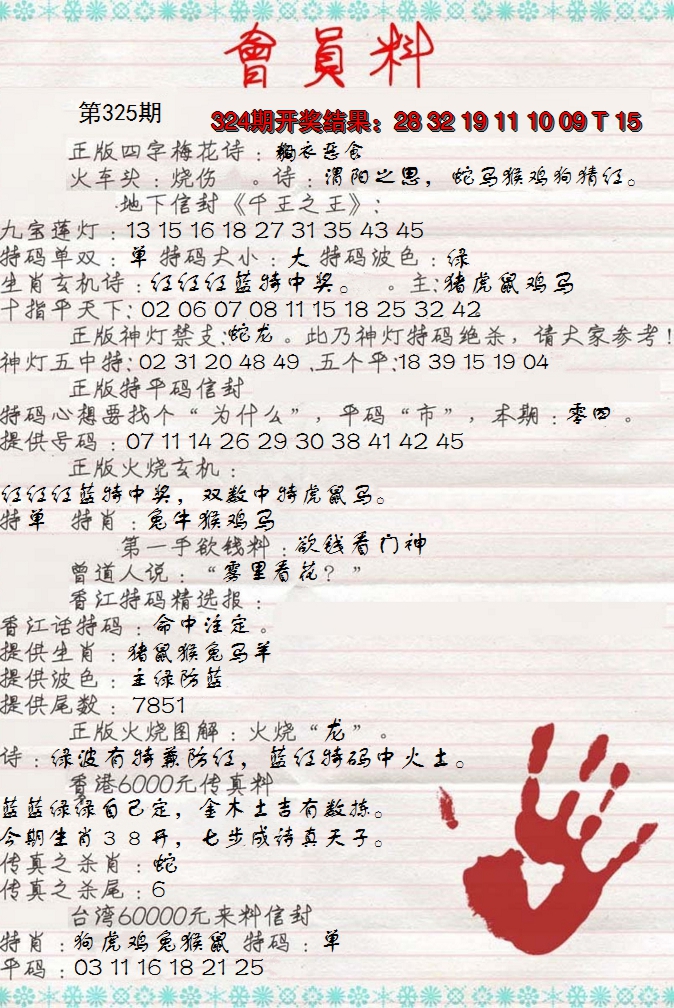 會員料
第325期
324期开奖结果：28 32 19 11 10 09 T 15
正版四字梅花诗：鞠衣恶食
火车头：烧伤 。诗：渭阳之思，蛇马猴鸡狗猜红。
地下信封《千王之王》：
九宝莲灯：13 15 16 18 27 31 35 43 45
特码单双：单 特码大小：大 特码波色：绿
生肖玄机诗：红红红蓝特中奖。 。主：猪虎鼠鸡马
十指平天下：02 06 07 08 11 15 18 25 32 42
正版神灯禁支：蛇龙。此乃神灯特码绝杀，请大家参考！
神灯五中特：02 31 20 48 49 .五个平：18 39 15 19 04
正版特平码信封
特码心想要找个“为什么”，平码“市”，本期：零四。
提供号码：07 11 14 26 29 30 38 41 42 45
正版火烧玄机：
红红红蓝特中奖，双数中特虎鼠马。
特单 特肖：兔牛猴鸡马
第一手欲钱料：欲钱看门神
曾道人说：“雾里看花？”
香江特码精选报：
香江话特码：命中注定。
提供生肖：猪鼠猴兔马羊
提供波色：主绿防蓝
提供尾数：7851
正版火烧图解：火烧“龙”。
诗：绿波有特兼防红，蓝红特码中火土。
香港6000元传真料
蓝蓝绿绿自己定，金木土吉有数拣。
今期生肖38开，七步成诗真天子。
传真之杀肖：蛇
传真之杀尾：6
台湾60000元来料信封
特肖：狗虎鸡兔猴鼠 特码：单
平码：03 11 16 18 21 25